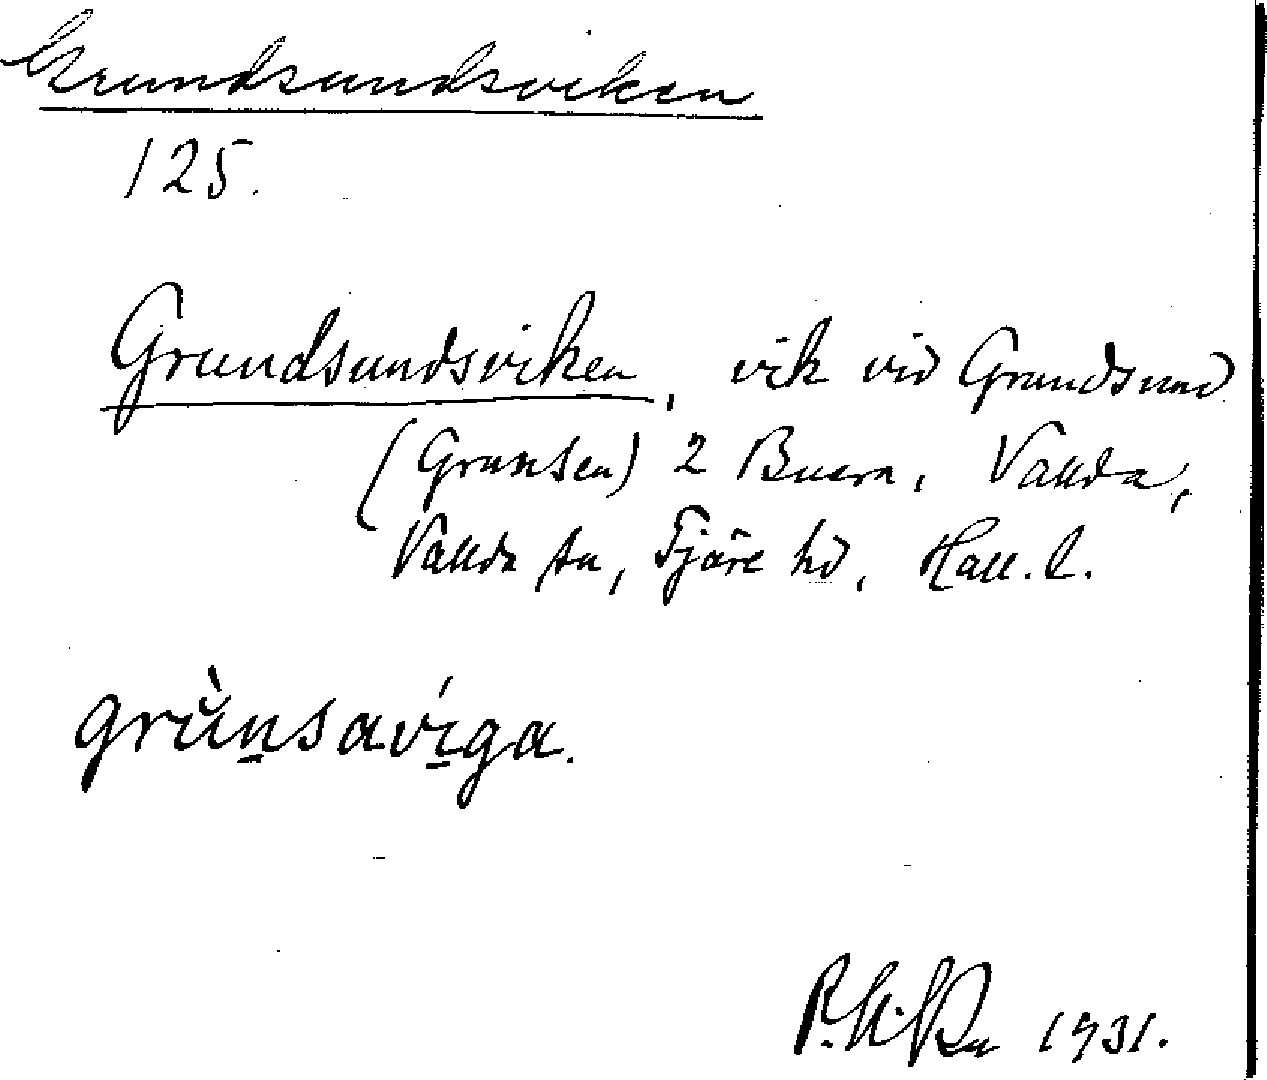 Grundsundsviken
125.
Grundsundsviken, vik vid Grundsund
(Grunsen) 2 Buera, Vallda,
Vallda sn, Fjäre hd, Hall. l.
grùnsavíga.
1931.